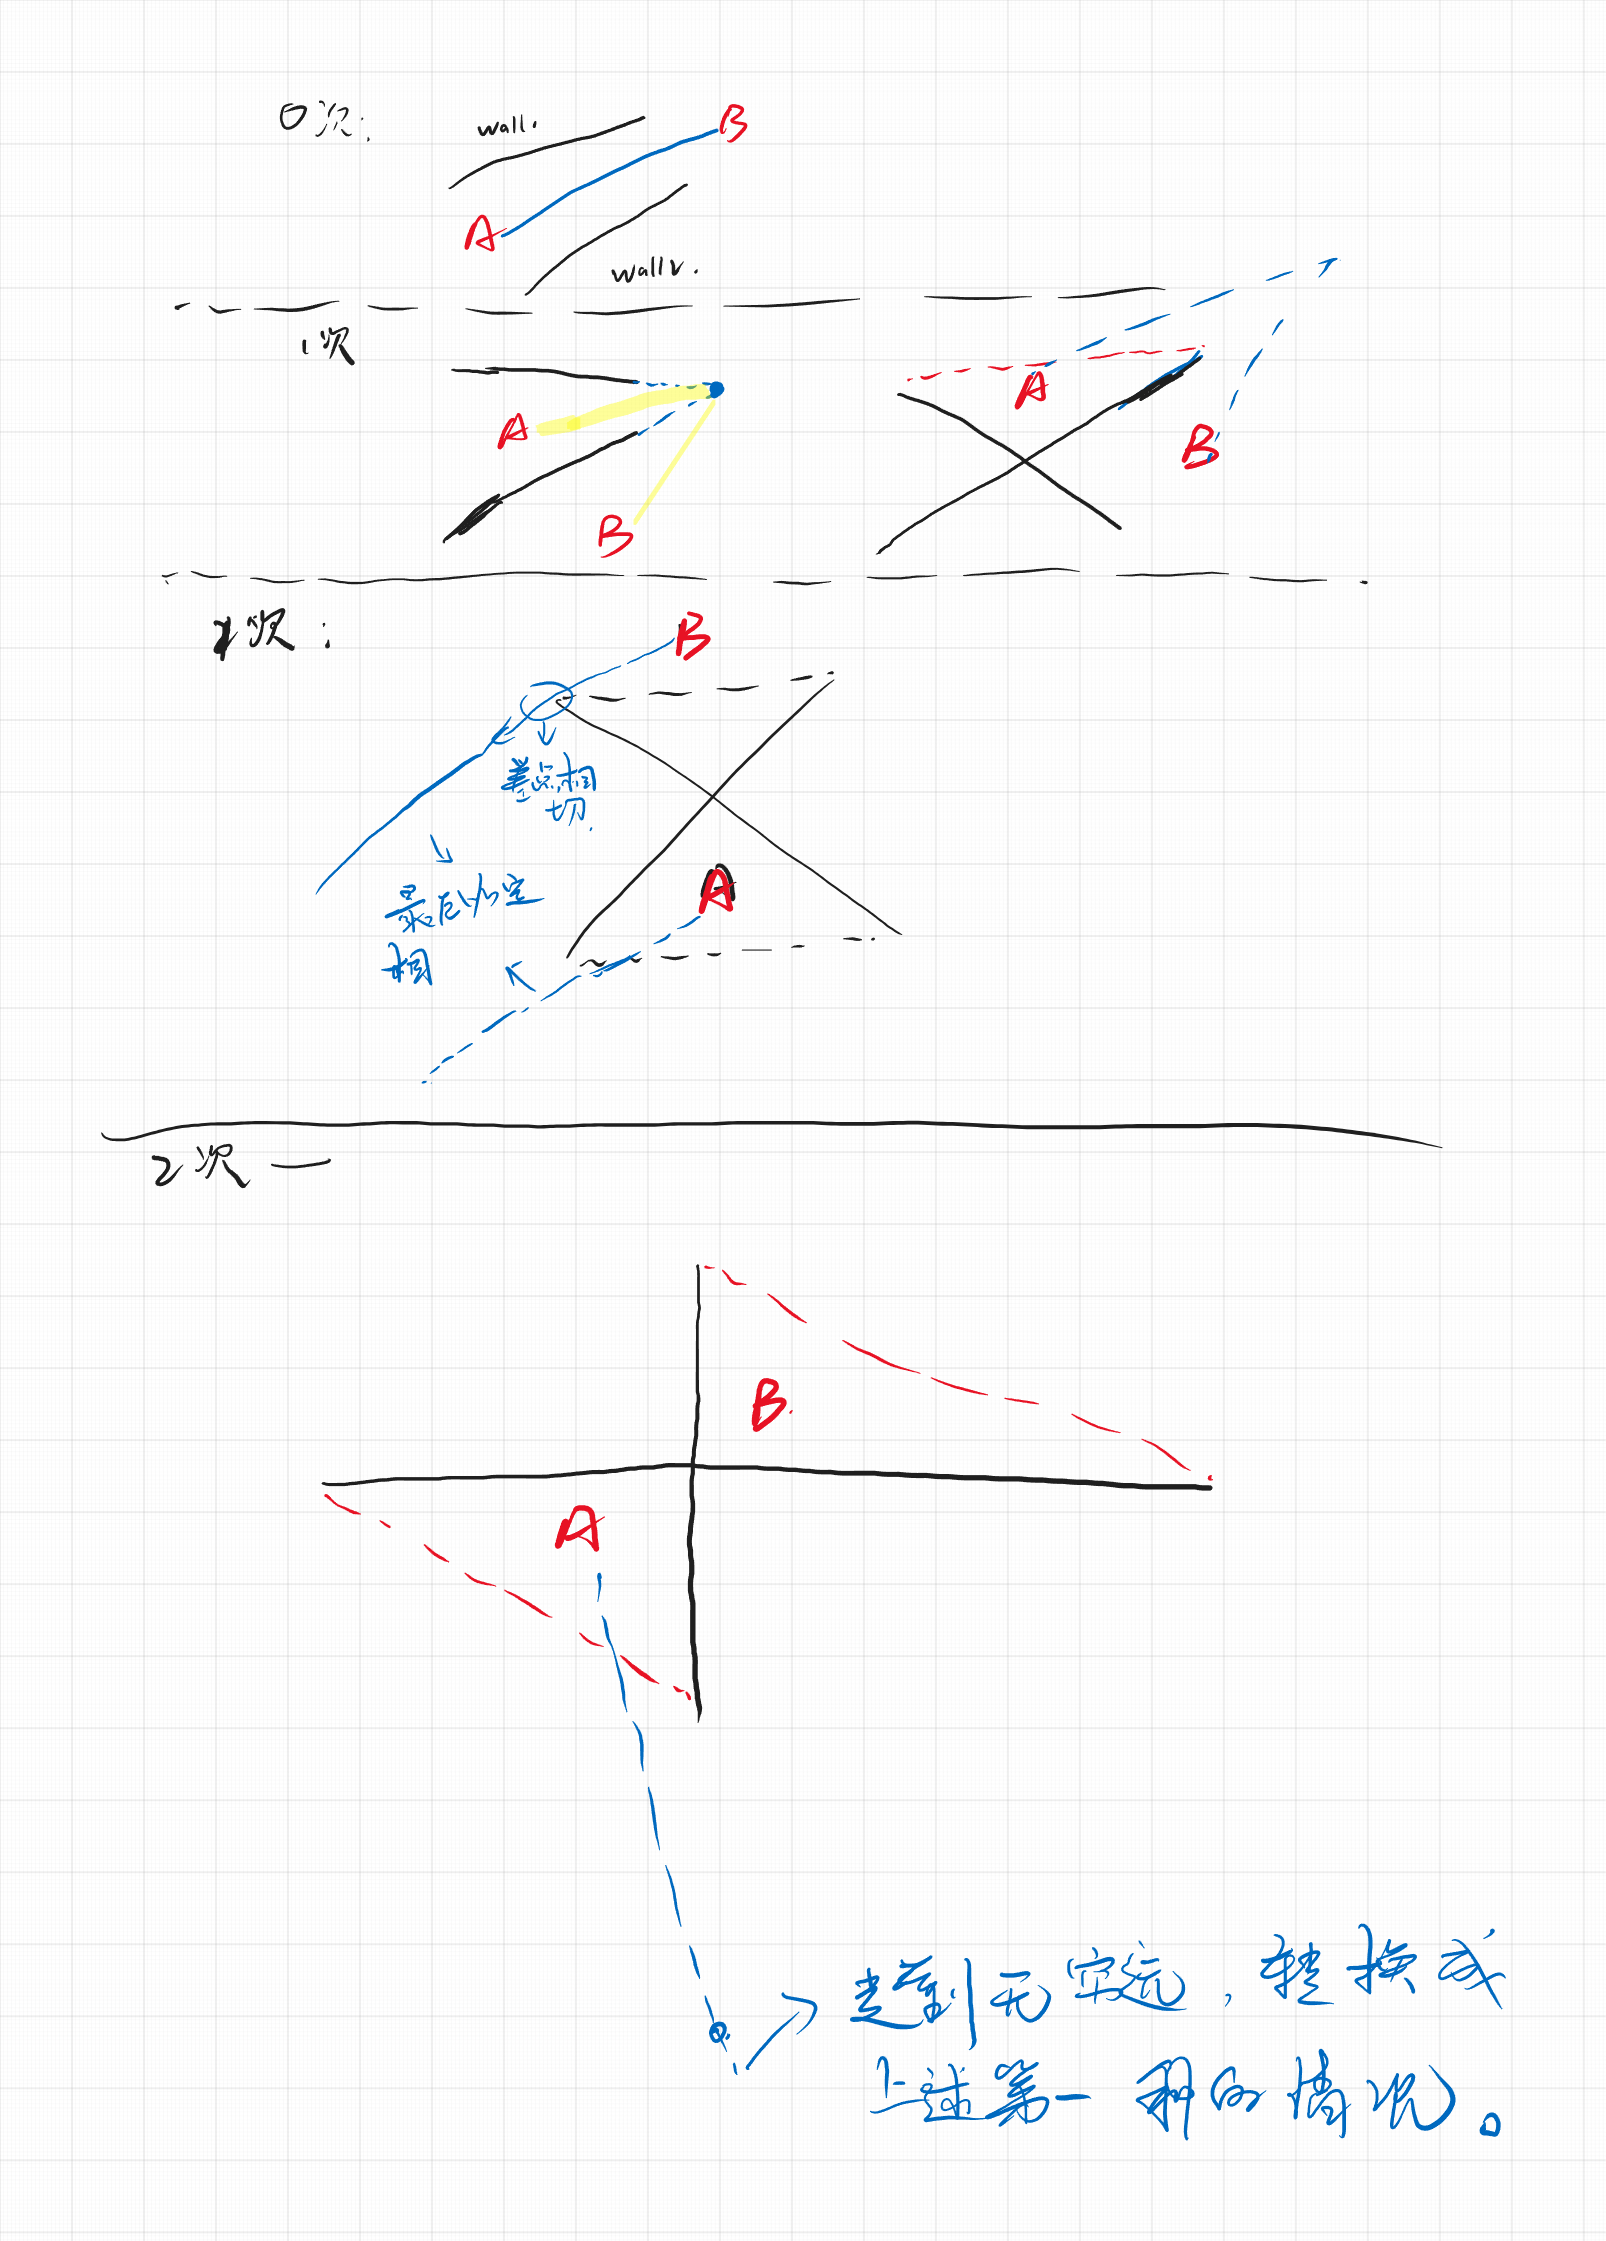 0次:
wall.
B
A
wall2.
1次
A
B
A
B
1次:
B
差点相
切.
A
最后必定
相
2次 —
B.
A
走到无穷远,转换成
上述第一种的情况。